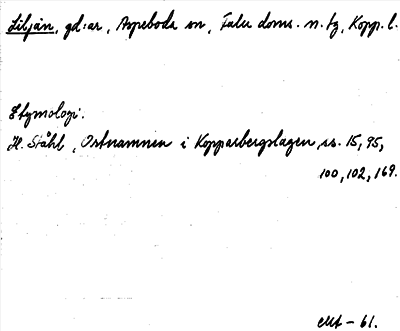 Liljan, gd:ar, Aspeboda sn, Falu doms. n. tg, Kopp. l.
Etymologi:
H. Ståhl, Ortnamnen i Kopparbergslagen, ss. 15, 95,
100, 102, 169.
– 61.